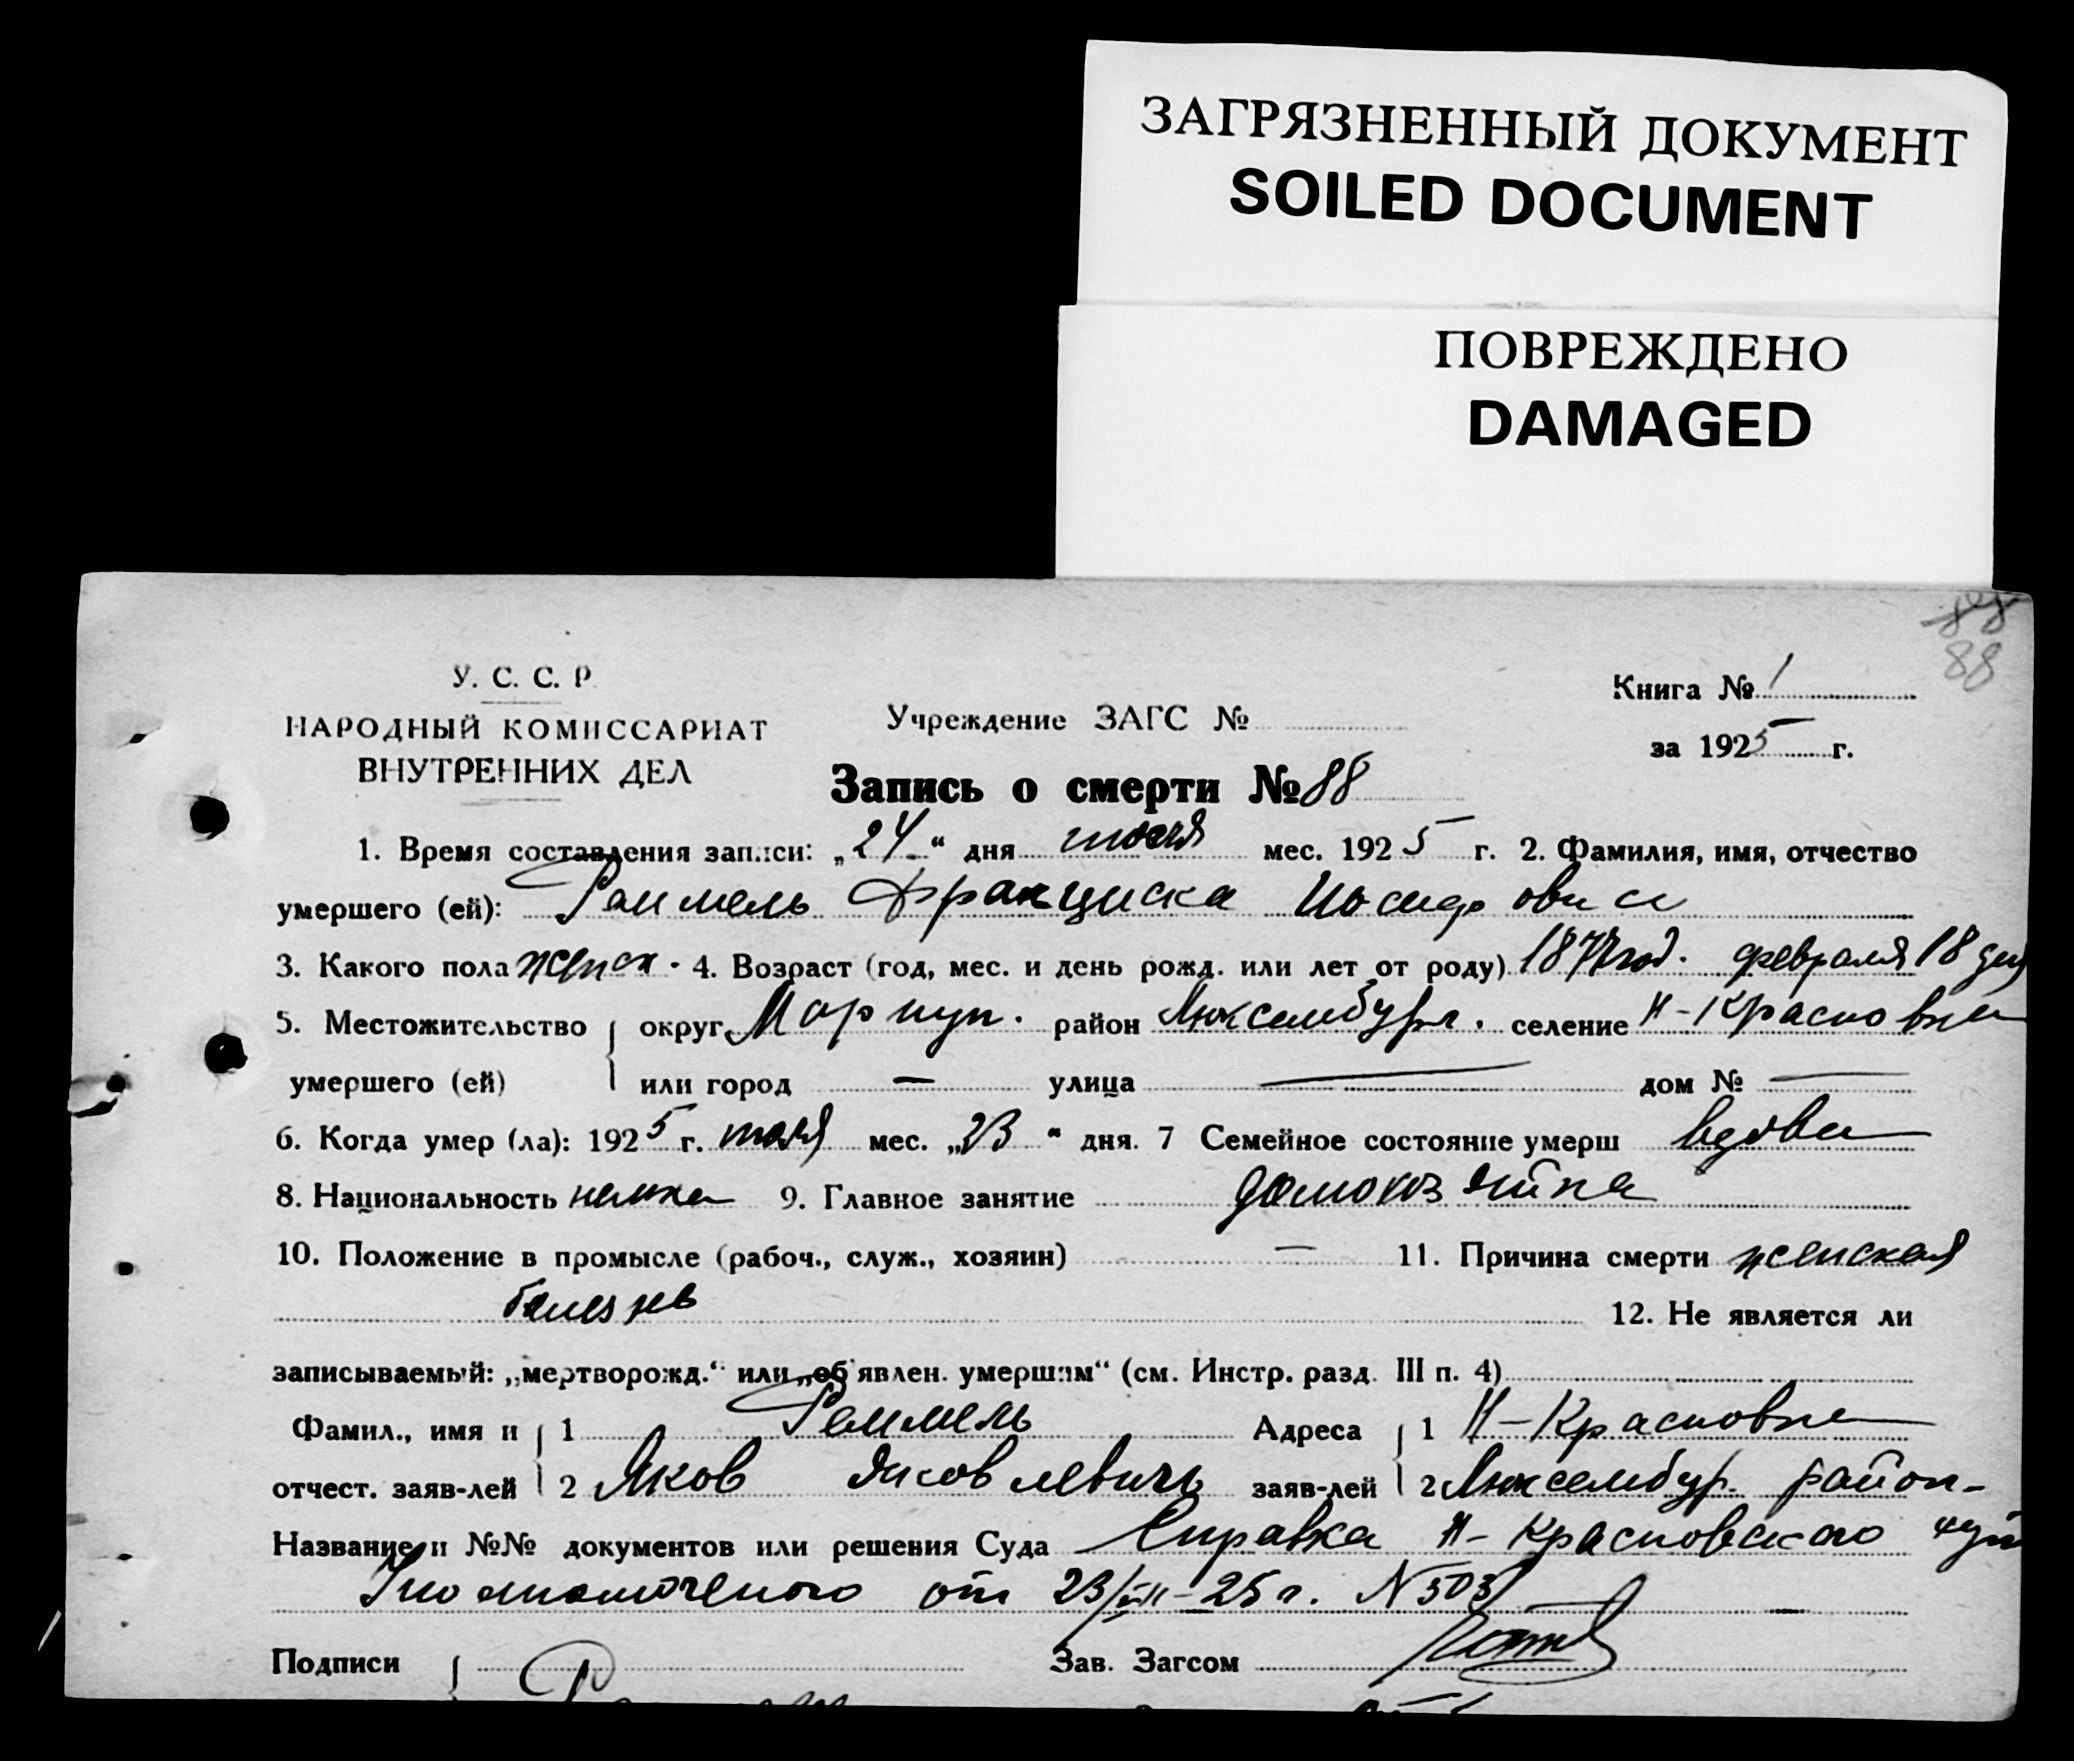 ЗАГРЯЗНЕННЫЙ ДОКУМЕНТ
SOILED DOCUMENT
ПОВРЕЖДЕНО
DAMAGED
88
88
У. С. С. Р.
НАРОДНЫЙ КОМИССАРИАТ
ВНУТРЕННИХ ДЕЛ
Учреждение ЗАГС №
Книга № 1
за 1925 г.
Запись о смерти № 88
1. Время составления записи: „24“ дня июля мес. 1925 г. 2. Фамилия, имя, отчество
умершего (ей): Реммель Франциска Иосифовна
3. Какого пола женск. 4. Возраст (год, мес. и день рожд. или лет от роду) 1877 год. февраля 18 дня
5. Местожительство округ. Мариуп. район Люксембург. селение Н-Красновка
умершего (ей) или город — улица — дом № —
6. Когда умер (ла): 1925 г. июля мес. „23“ дня. 7 Семейное состояние умерш вдова
8. Национальность немка 9. Главное занятие домохозяйка
10. Положение в промысле (рабоч., служ., хозяин) — 11. Причина смерти женская
болезнь
12. Не является ли
записываемый: „мертворожд.“ или „об'явлен. умершим“ (см. Инстр. разд. III п. 4)
Фамил., имя и 1 Реммель Адреса 1 Н-Красновка
отчест. заяв-лей 2 Яков Яковлевичъ заяв-лей 2 Люксембур. район-
Название и №№ документов или решения Суда Справка Н-Красновского
Уполномоченого от 23/VII-25 г. N 503
Подписи Зав. Загсом